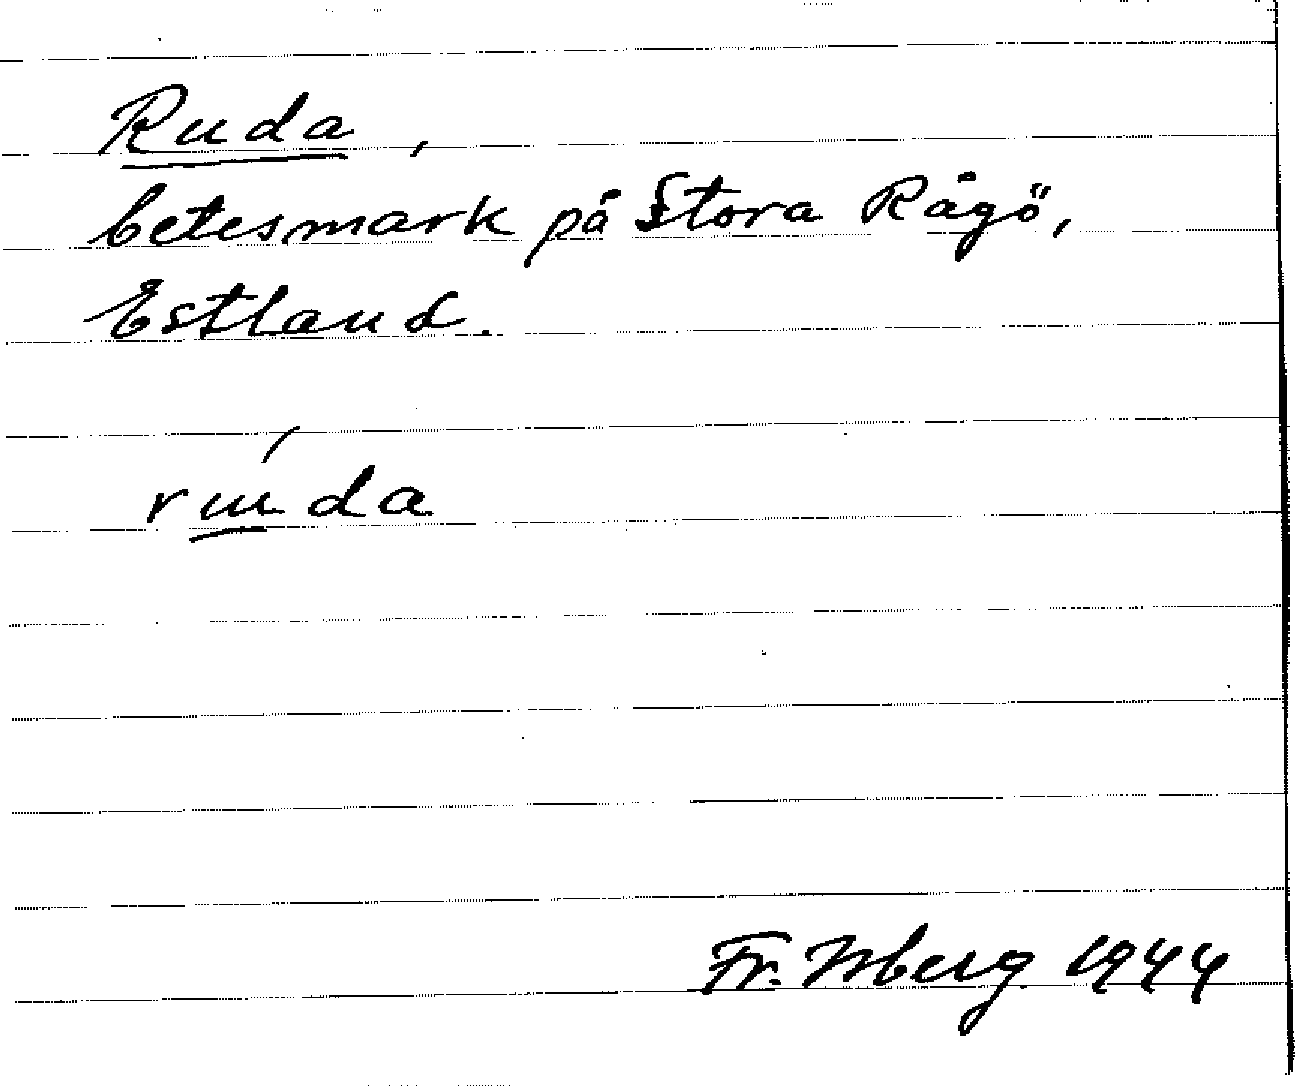 Ruda,
betesmark på Stora Rågö,
Estland.
rúda
Fr. Isberg 1944